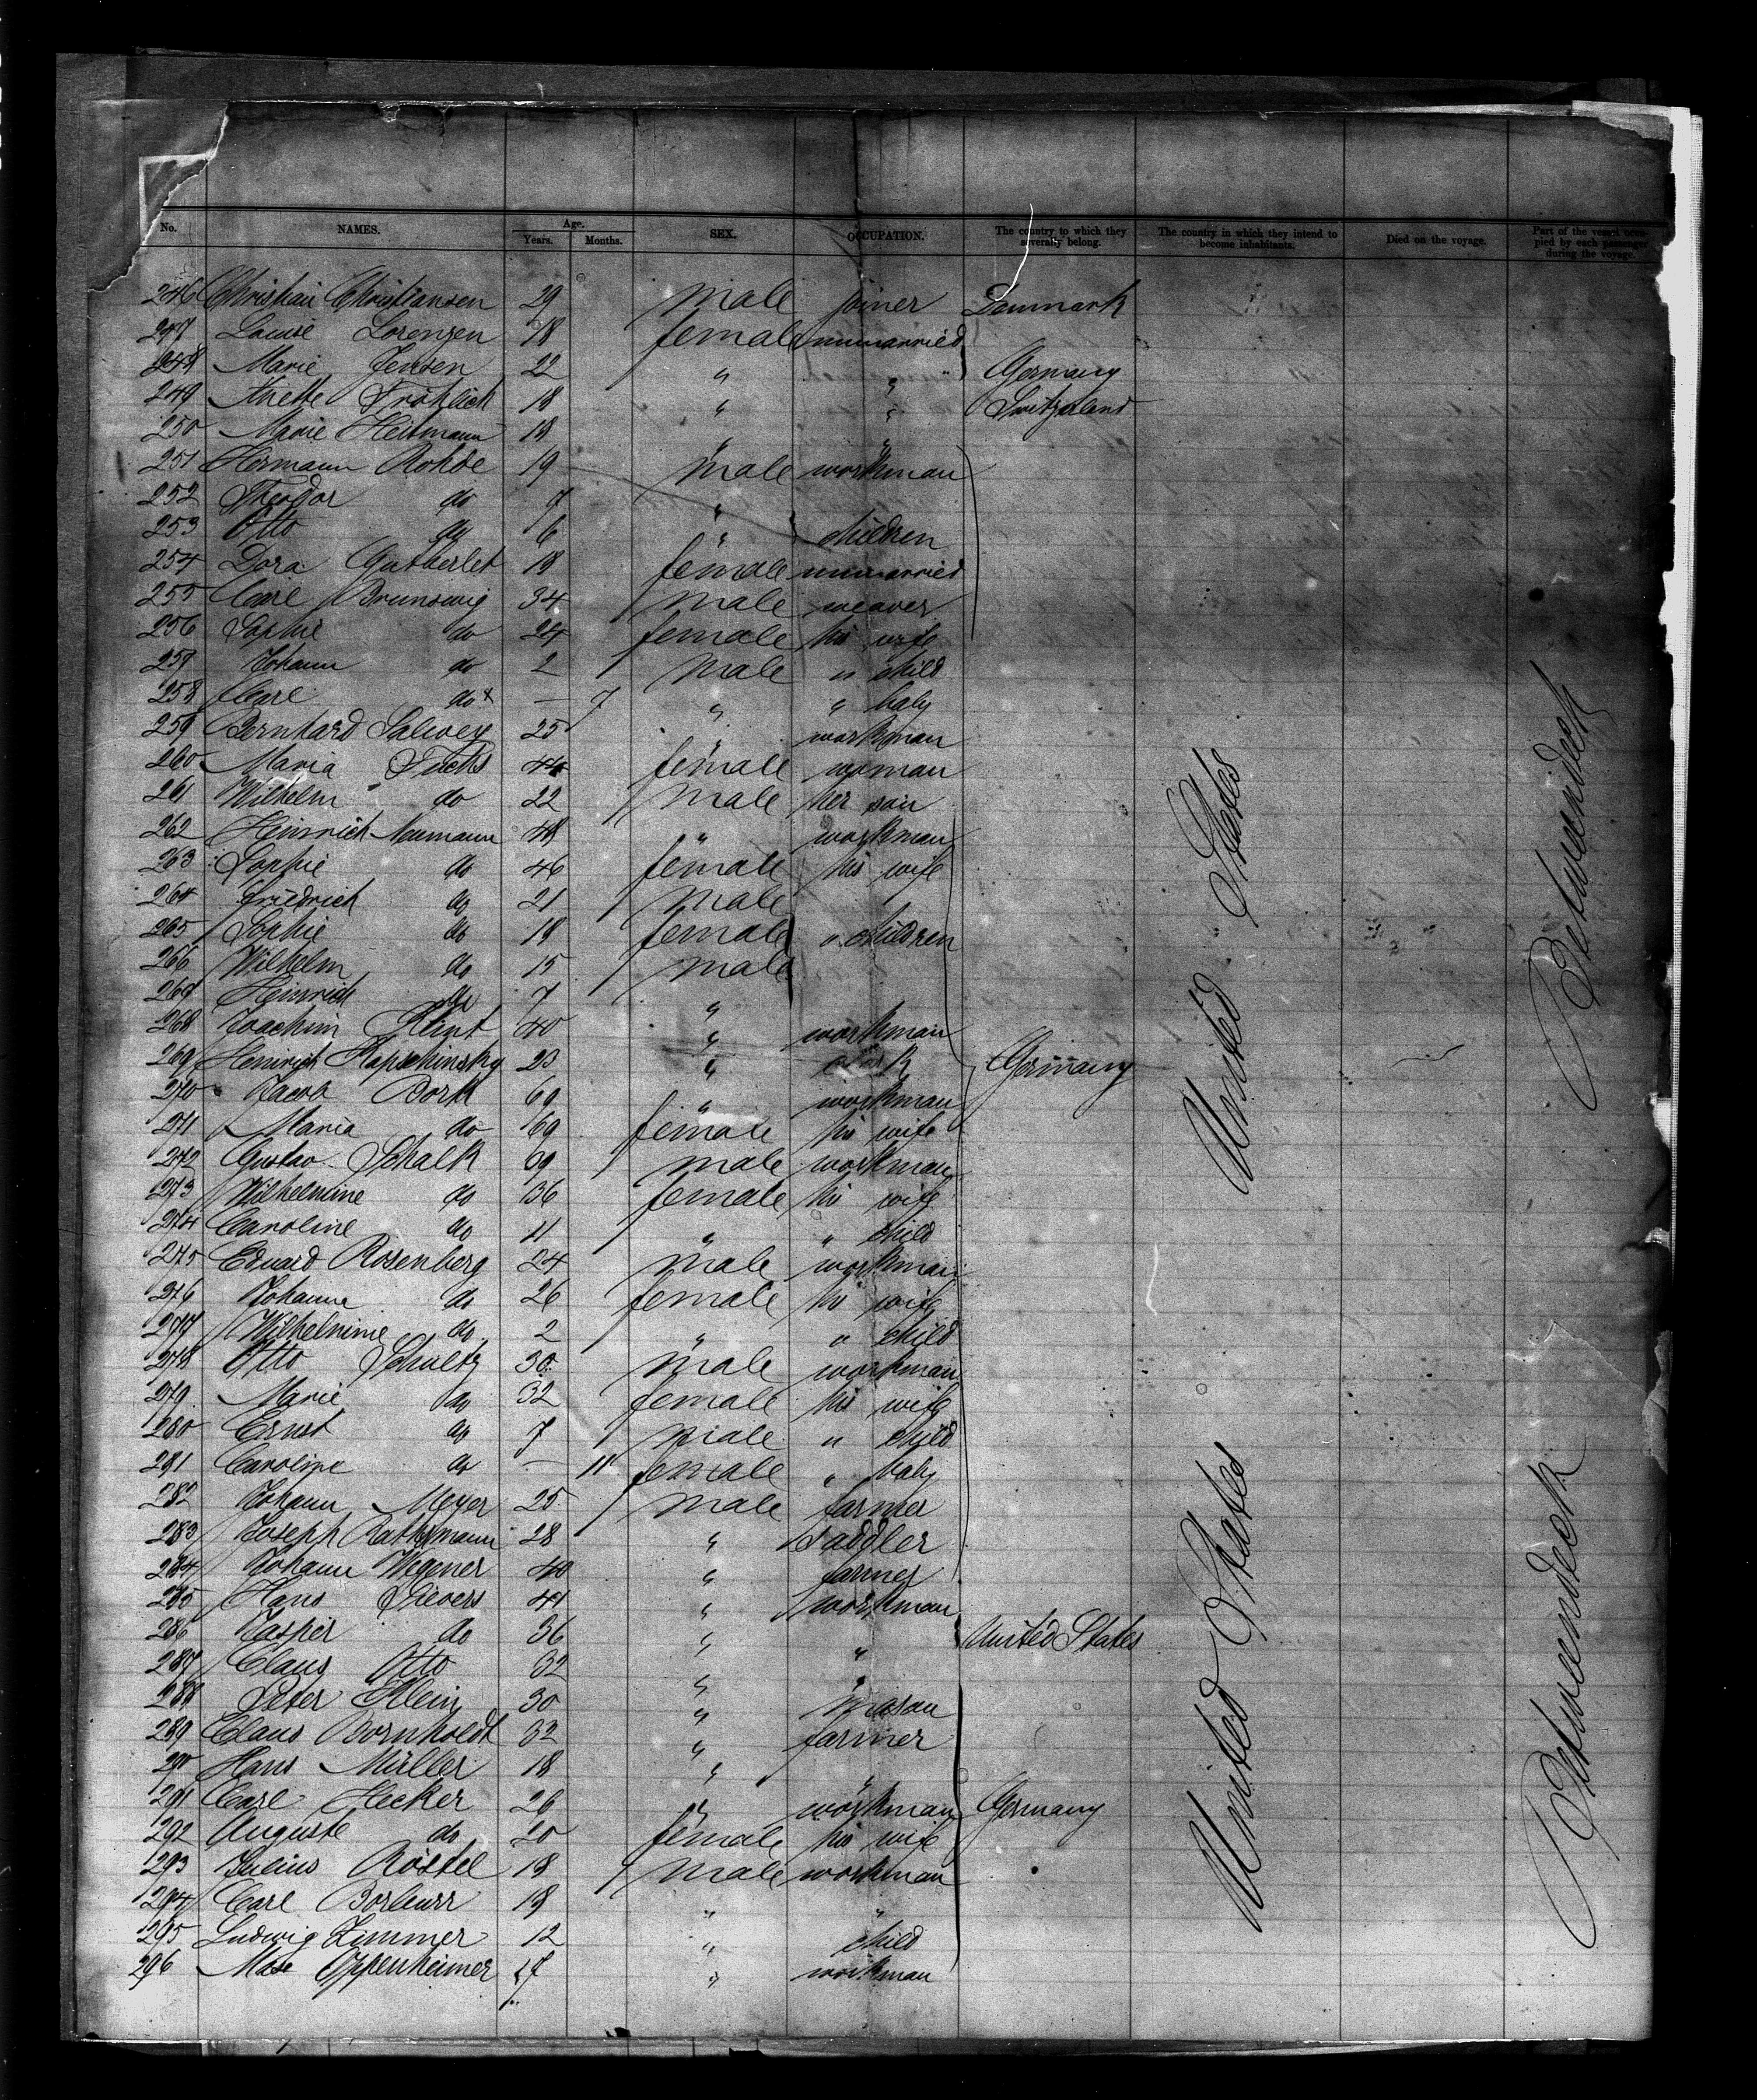 No. NAMES. Age. Years. Months. SEX. OCCUPATION. The country to which they severally belong. The country in which they intend to become inhabitants. Died on the voyage. Part of the vessel occupied by each passenger during the voyage.
246 Christian Christiansen 29 male joiner Denmark
247 Louise Lorenzen 18 female unmarried
248 Marie Jensen 22 " " Germany
249 Anette Fröhlich 18 " " Switzerland
250 Marie Heitmann 18 " "
251 Hermann Rohde 19 male workman
252 Theodor do 7 "
253 Otto do 6 " children
254 Dora Gutberlet 18 female unmarried
255 Carl Brunswig 34 male weaver
256 Sophie do 24 female his wife
257 Johann do 2 male " child
258 Carl do x — 7 " " baby
259 Bernhard Salwey 25 " workman
260 Maria Fuchs 44 female woman
261 Wilhelm do 22 male her son
262 Heinrich Neumann 48 " workman
263 Sophie do 46 female his wife
264 Friedrich do 21 male
265 Sophie do 18 female " children
266 Wilhelm do 15 male
267 Heinrich do 7 "
268 Joachim Klint 40 " workman
269 Heinrich 23 " Germany
270 Jacob Bork 69 " workman
271 Maria do 69 female his wife
272 Gustav Schalk 39 male workman
273 Wilhelmine do 36 female his wife
274 Caroline do 11 " " child
275 Eduard Rosenberg 24 male workman
276 Johanne do 26 female his wife
277 Wilhelmine do 2 " " child
278 Otto Schultz 30 male workman
279 Marie do 32 female his wife
280 Ernst do 7 male " child
281 Caroline do — 11 female " baby
282 Johann Meyer 25 male farmer
283 Joseph 28 " saddler
284 Johann Wegener 40 " farmer
285 Hans Sievers 41 " workman
286 Kasper do 36 " " United States
287 Claus Otto 32 " "
288 Peter Klein 30 " mason
289 Claus Bornholdt 32 " farmer
290 Hans Müller 18 " "
291 Carl Hecker 26 " workman Germany
292 Auguste do 20 female his wife
293 Julius Röstel 18 male workman
294 Carl 18 " "
295 Ludwig Zimmer 12 " child
296 Oppenheimer 17 " workman
United States
Betweendeck
United States
Betweendeck